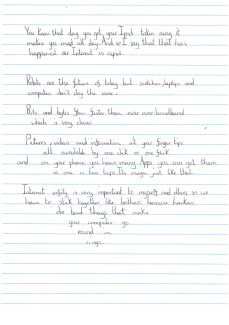 You know that day you got your Ipod taken away it
makes you mad all day. And so I say that that has
happened our Internet is rapid.
Robots are the future of today but switches, laptops and
computers don't stay the same.
Bits and bytes flow faster than ever over broadband
which is very clever.
Pictures, videos and information at your finger tips
all available by one click or one flick
and on your phone you have many Apps you can get them
in one or two taps. Its magic just like that.
Internet safety is very important to myself and others so we
have to stick together like brothers because hackers
do bad things that make
your computer go
round in
rings.